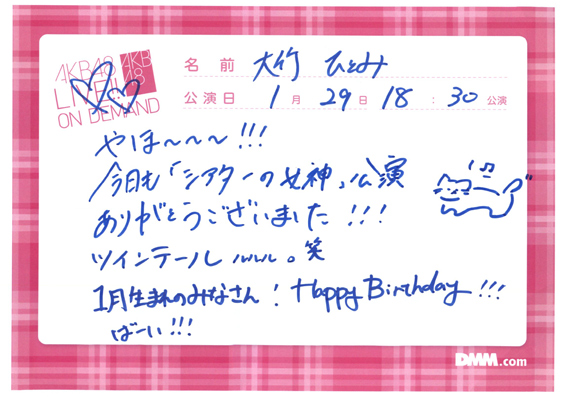 AKB48
LIVE!!
ON DEMAND
AKB
48
名前 大竹 ひとみ
公演日 1月 29日 18:30公演
やほ〜〜〜!!!
今日も「シアターの女神」公演
ありがとうございました!!!
ツインテールルルル。笑
1月生まれのみなさん! Happy Birthday!!!
ばーい!!!
DMM.com